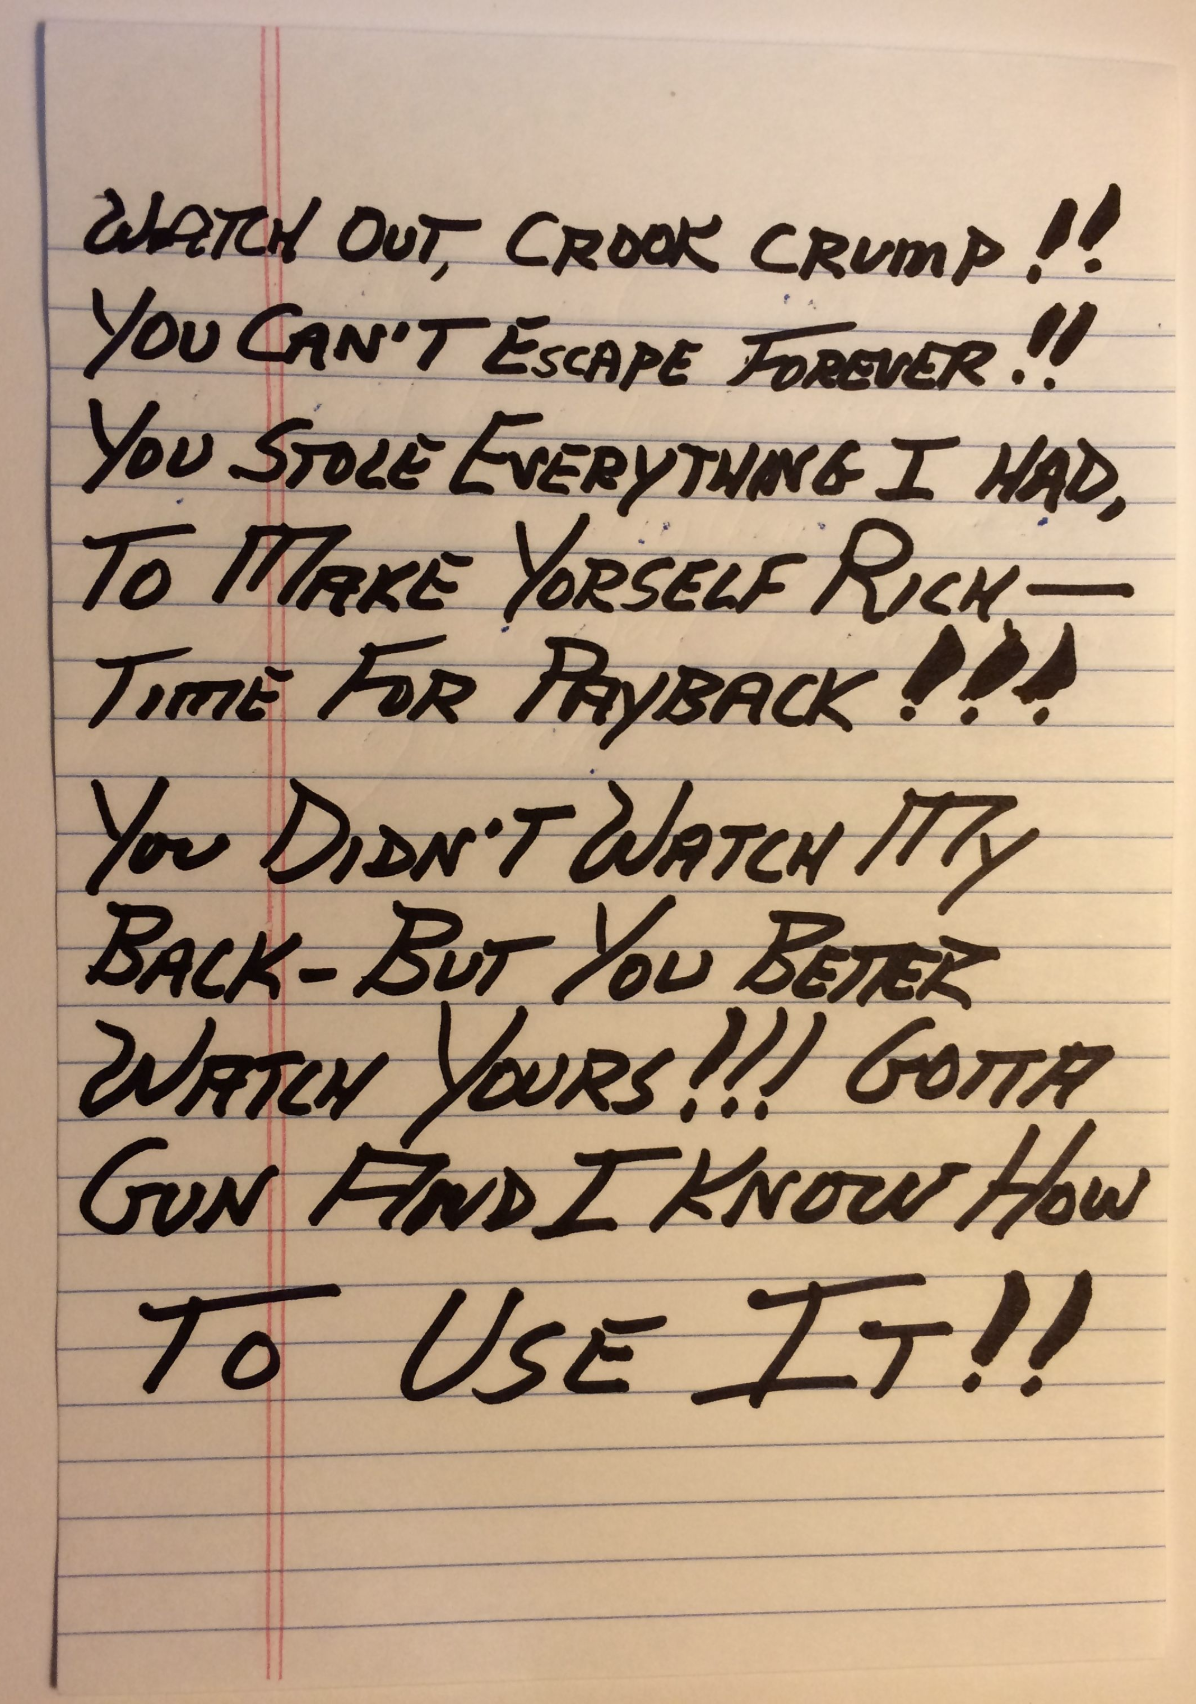 WATCH OUT, CROOK CRUMP!!
YOU CAN'T ESCAPE FOREVER!!
YOU STOLE EVERYTHING I HAD,
TO MAKE YORSELF RICH—
TIME FOR PAYBACK!!!
YOU DIDN'T WATCH MY
BACK-BUT YOU BETTER
WATCH YOURS!!! GOTTA
GUN AND I KNOW HOW
TO USE IT!!